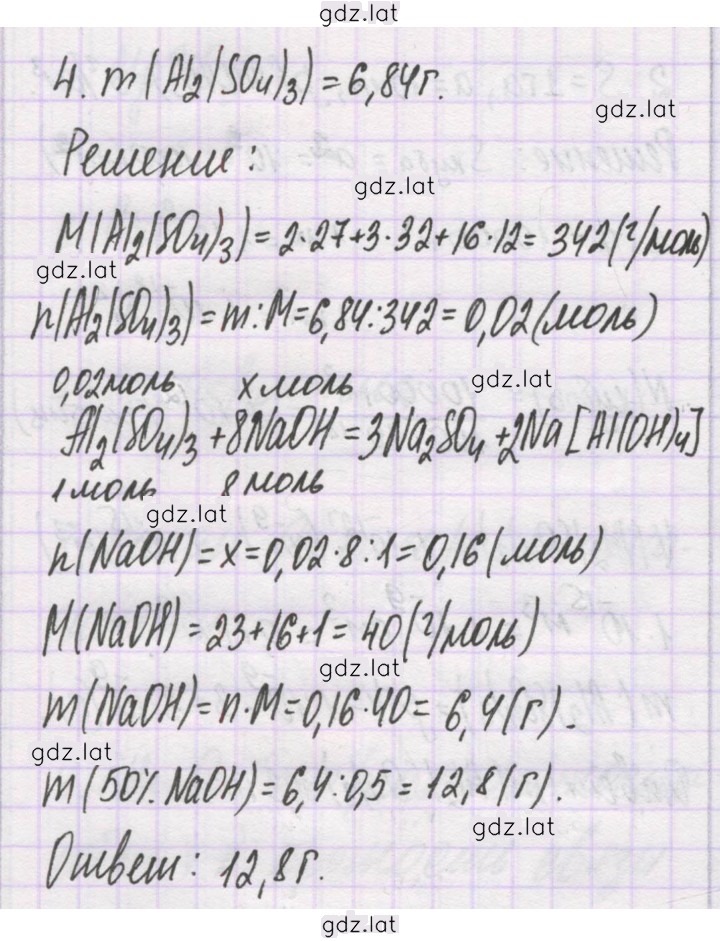 gdz.lat
4. m(Al₂(SO₄)₃) = 6,84г.
gdz.lat
Решение:
gdz.lat
M(Al₂(SO₄)₃) = 2·27+3·32+16·12 = 342(г/моль)
gdz.lat
n(Al₂(SO₄)₃) = m:M = 6,84:342 = 0,02(моль)
0,02моль x моль gdz.lat
Al₂(SO₄)₃ + 8NaOH = 3Na₂SO₄ + 2Na[Al(OH)₄]
1 моль 8 моль
gdz.lat
n(NaOH) = x = 0,02·8:1 = 0,16(моль)
M(NaOH) = 23+16+1 = 40(г/моль)
gdz.lat
m(NaOH) = n·M = 0,16·40 = 6,4(г).
gdz.lat
m(50% NaOH) = 6,4:0,5 = 12,8(г).
gdz.lat
Ответ: 12,8г.
gdz.lat